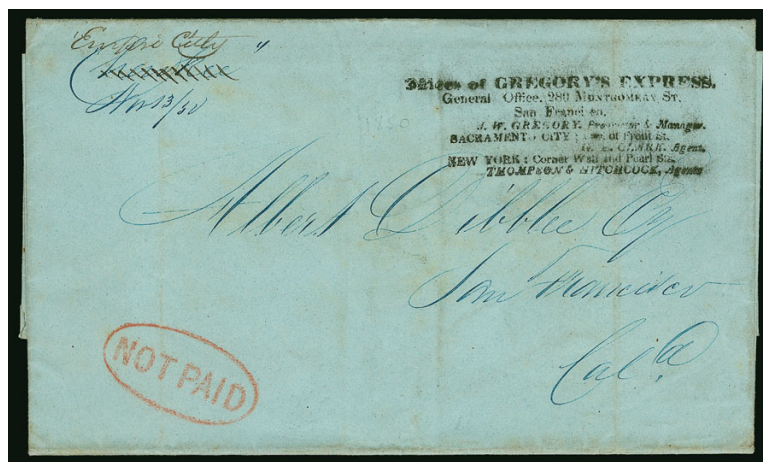 "Empire City"
Nov 13/50
1850
Offices of GREGORY'S EXPRESS.
General Office, 280 MONTGOMERY ST.
San Francisco.
J. W. GREGORY, Proprietor & Manager.
SACRAMENTO CITY: of Front St.
CLARK, Agent.
NEW YORK: Corner Wall and Pearl Sts.
THOMPSON & HITCHCOCK, Agents
Albert Dibblee Esq
San Francisco
Cal a
NOT PAID